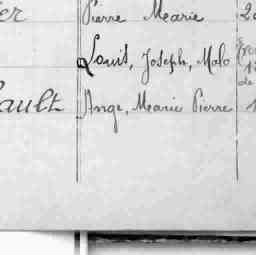 Pierre Marie
Louis, Joseph, Malo
ault Ange, Marie Pierre